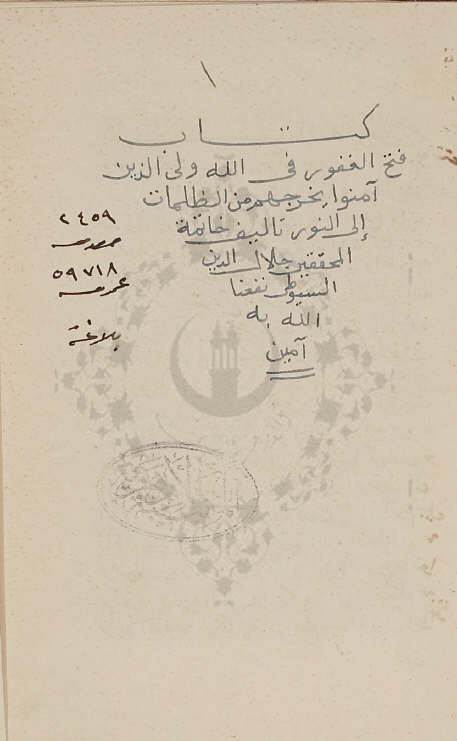 ١
كتاب
فتح الغفور في الله ولي الذين
آمنوا يخرجهم من الظلمات
إلى النور تاليف خاتمة
المحققين جلال الدين
السيوطي نفعنا
الله به
آمين
٢٤٥٩
خصوصية
٥٩٧١٨
عمومية
بلاغة